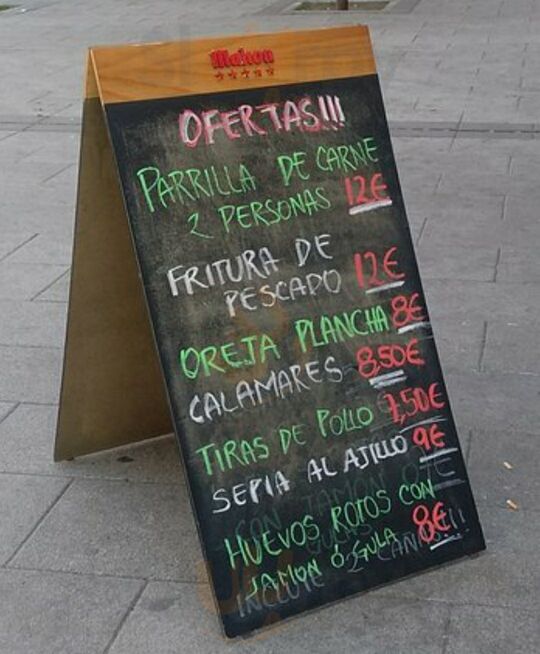 Mahou
OFERTAS!!!
PARRILLA DE CARNE
2 PERSONAS 12€
FRITURA DE
PESCADO 12€
OREJA PLANCHA 8€
CALAMARES 8,50€
TIRAS DE POLLO 7,50€
SEPIA AL AJILLO 9€
HUEVOS ROTOS CON
JAMON Ó GULA 8€
INCLUYE 2 CAÑAS!!!